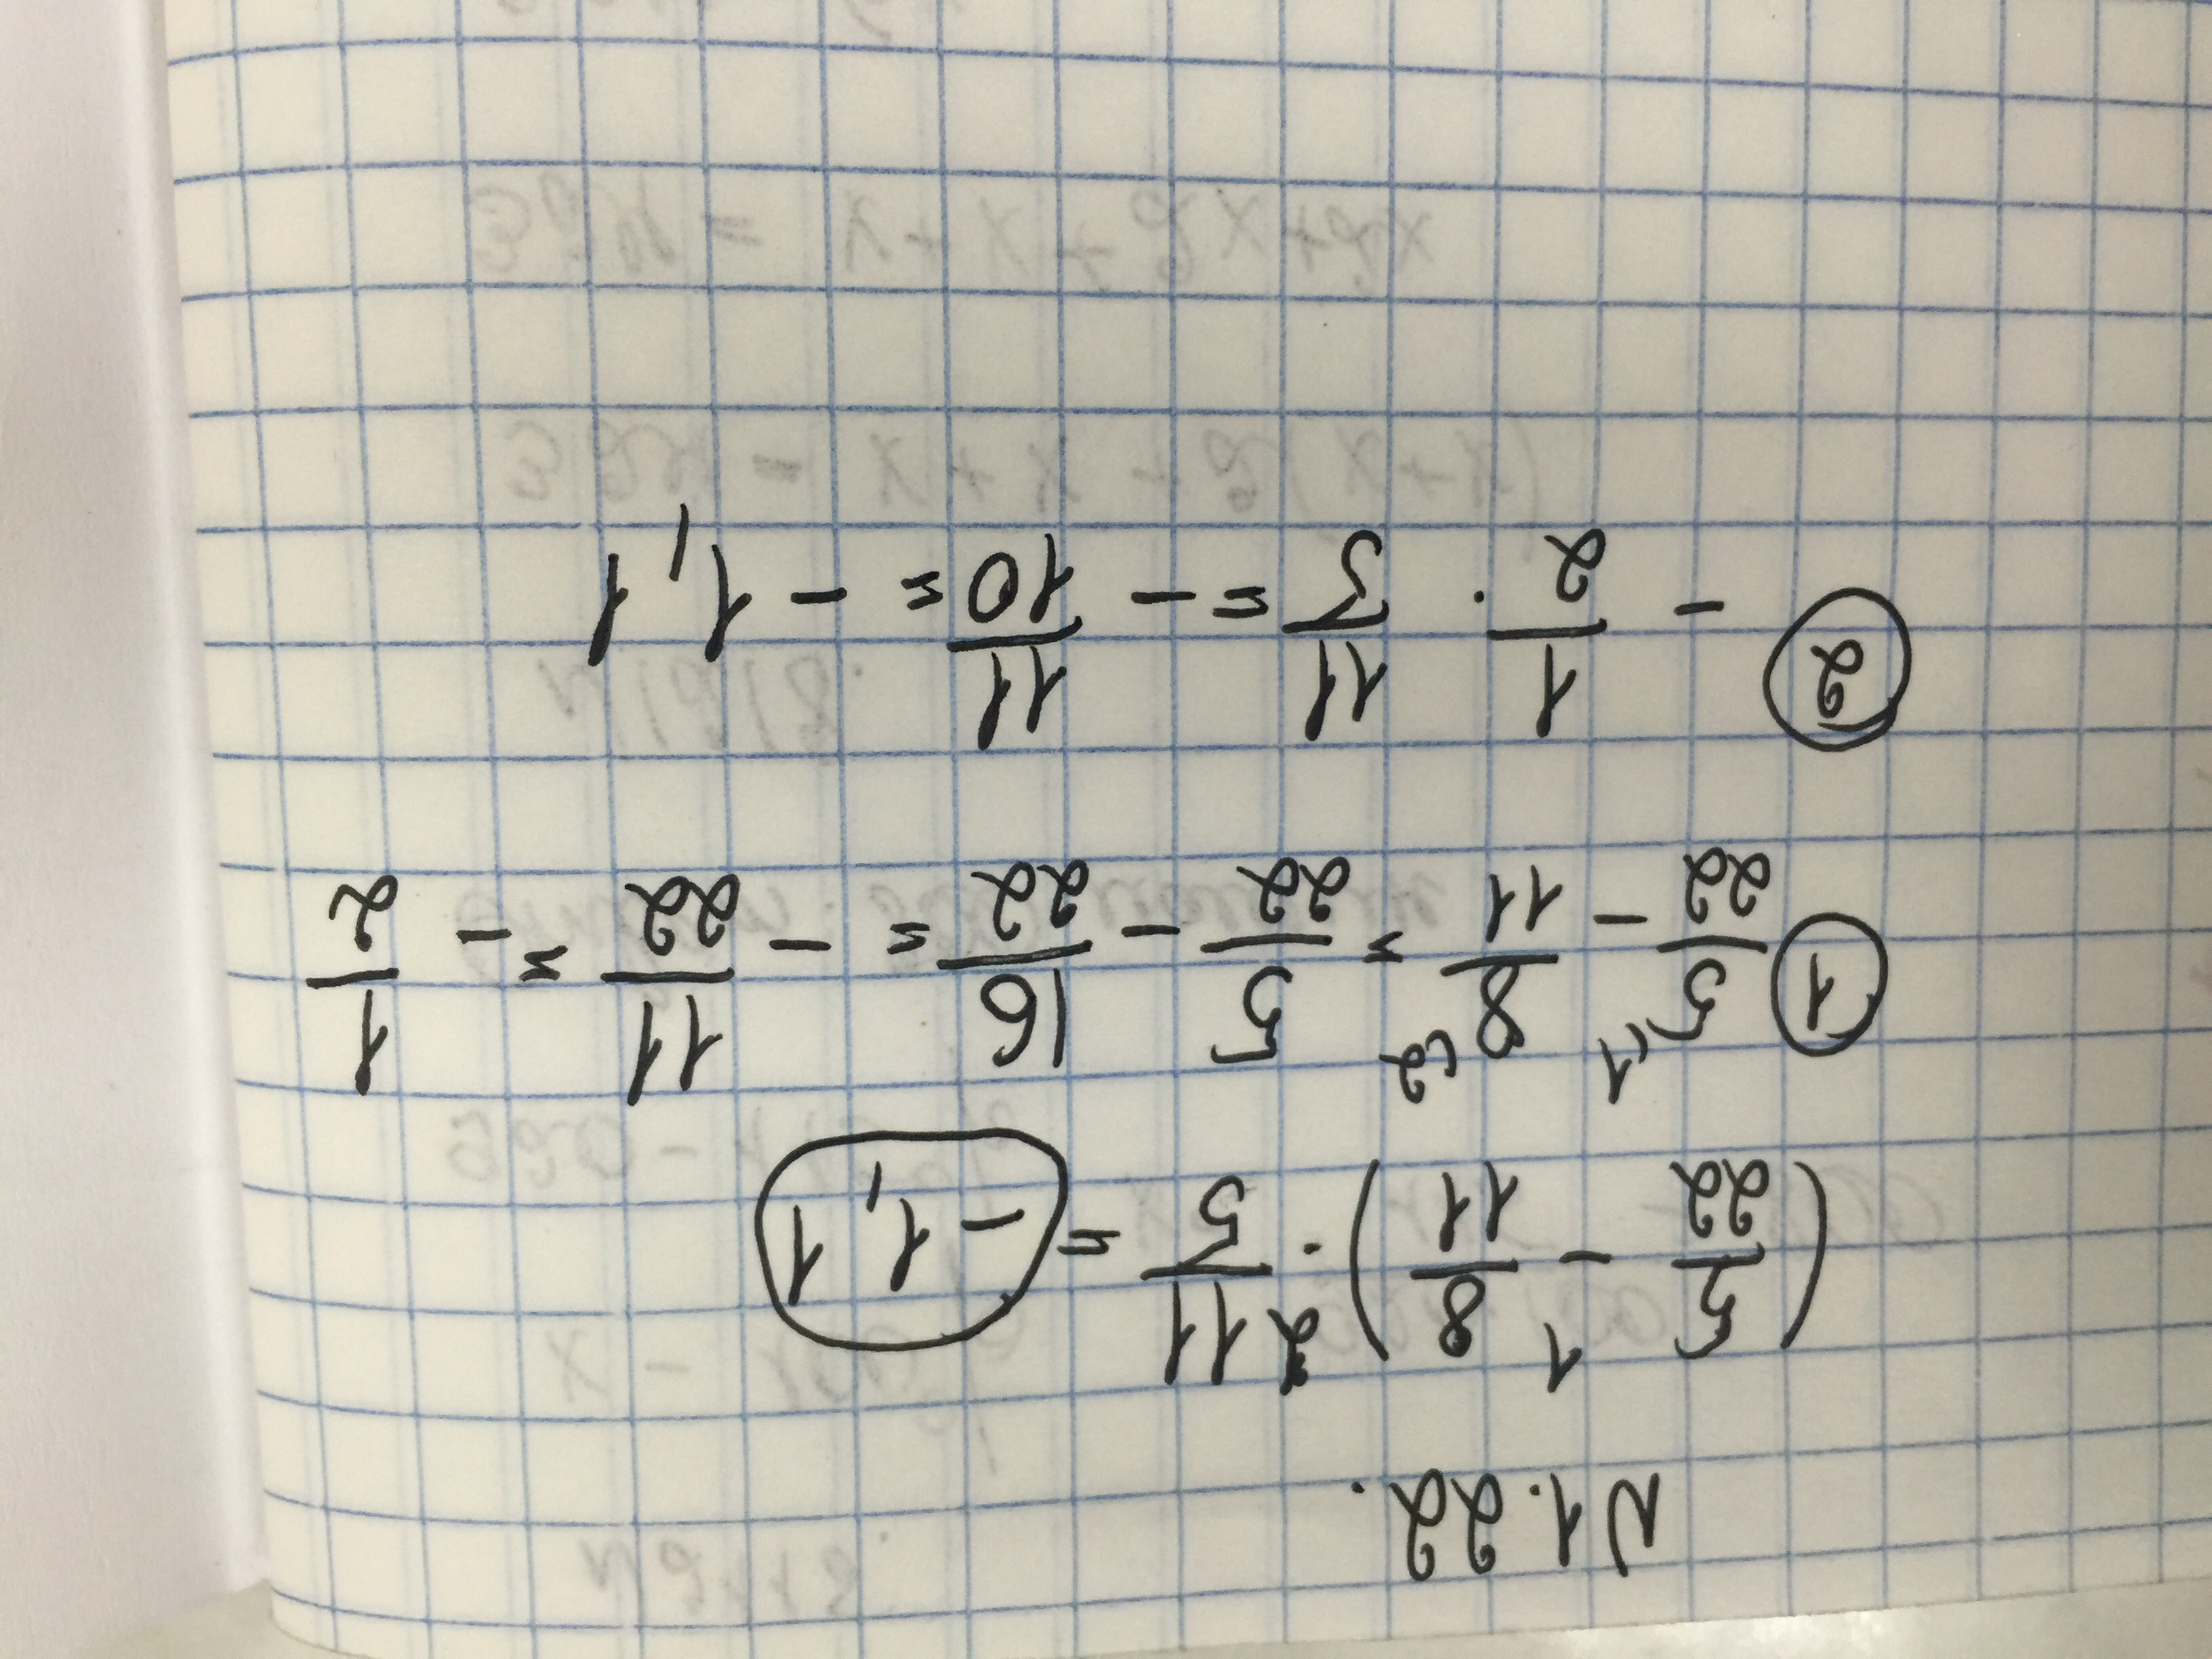 N1.22.
(5/22 - 8/11) · 11/5 = -1,1
1 2
① 5/22 - 8/11 = 5/22 - 16/22 = - 11/22 = - 1/2
② - 1/2 · 11/5 = - 11/10 = - 1,1